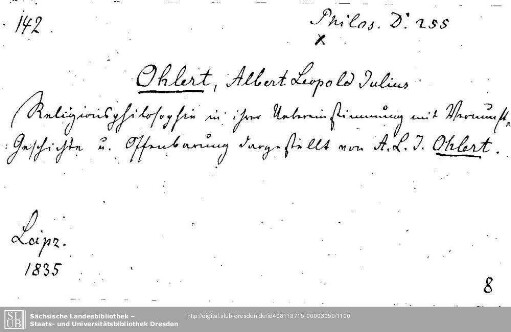 142.
Philos. D. 255
x
Ohlert, Albert Leopold Julius
Religionsphilosophie in ihrer Uebereinstimmung mit Vernunft,
Geschichte u. Offenbarung dargestellt von A. L. J. Ohlert.
Leipz.
1835
8
SLUB
Sächsische Landesbibliothek –
Staats- und Universitätsbibliothek Dresden